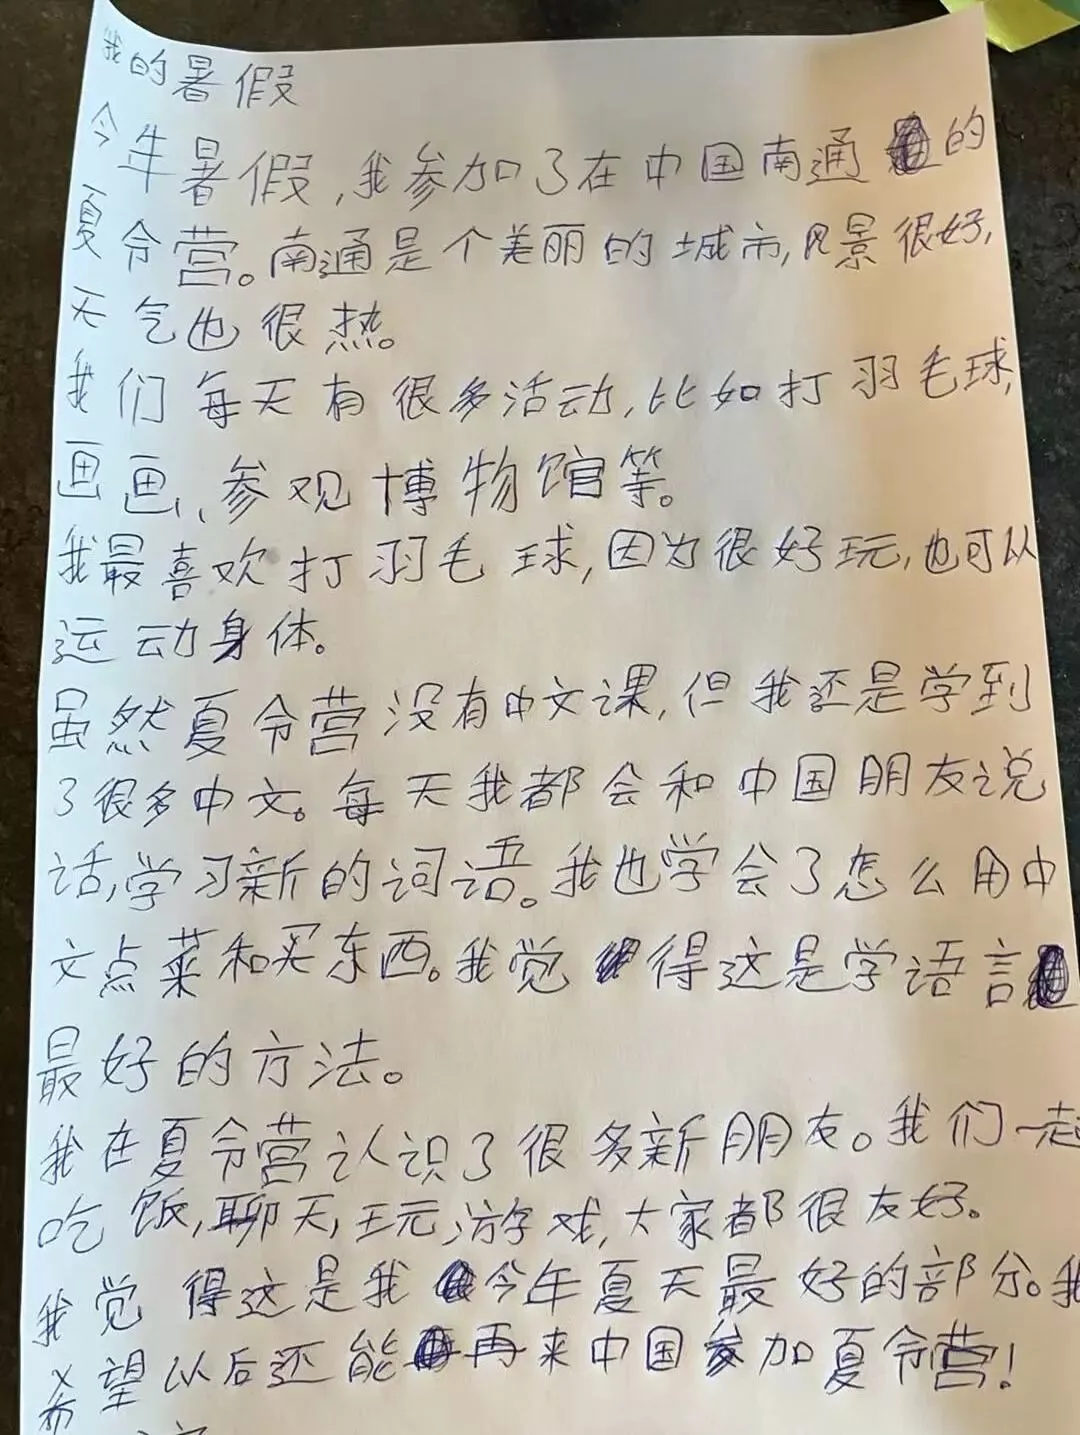 我的暑假
今年暑假,我参加了在中国南通的
夏令营。南通是个美丽的城市,风景很好,
天气也很热。
我们每天有很多活动,比如打羽毛球,
画画,参观博物馆等。
我最喜欢打羽毛球,因为很好玩,也可以
运动身体。
虽然夏令营没有中文课,但我还是学到
了很多中文。每天我都会和中国朋友说
话,学习新的词语。我也学会了怎么用中
文点菜和买东西。我觉得这是学语言
最好的方法。
我在夏令营认识了很多新朋友。我们一起
吃饭,聊天,玩游戏,大家都很友好。
我觉得这是我今年夏天最好的部分。我
希望以后还能再来中国参加夏令营!